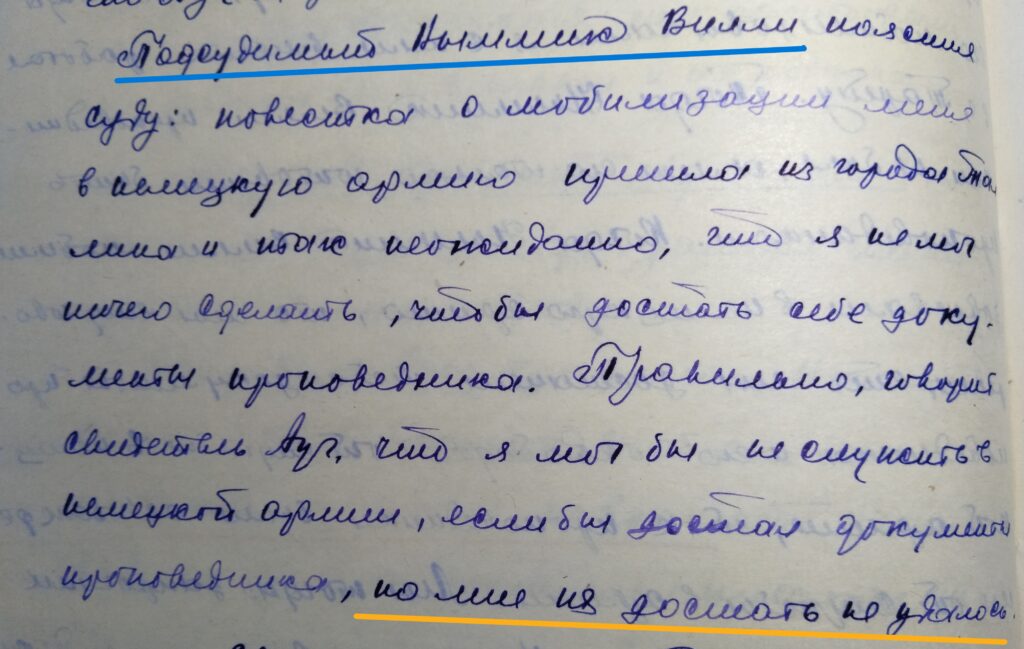 Подсудимый Ныммик Вилли пояснил
суду: повестка о мобилизации меня
в немецкую армию пришла из города Тал
лина и так неожиданно, что я не мог
ничего сделать, чтобы достать себе доку-
менты проповедника. Правильно, говорит
свидетель Ауг, что я мог бы не служить в
немецкой армии, если бы достал документы
проповедника, но мне их достать не удалось.